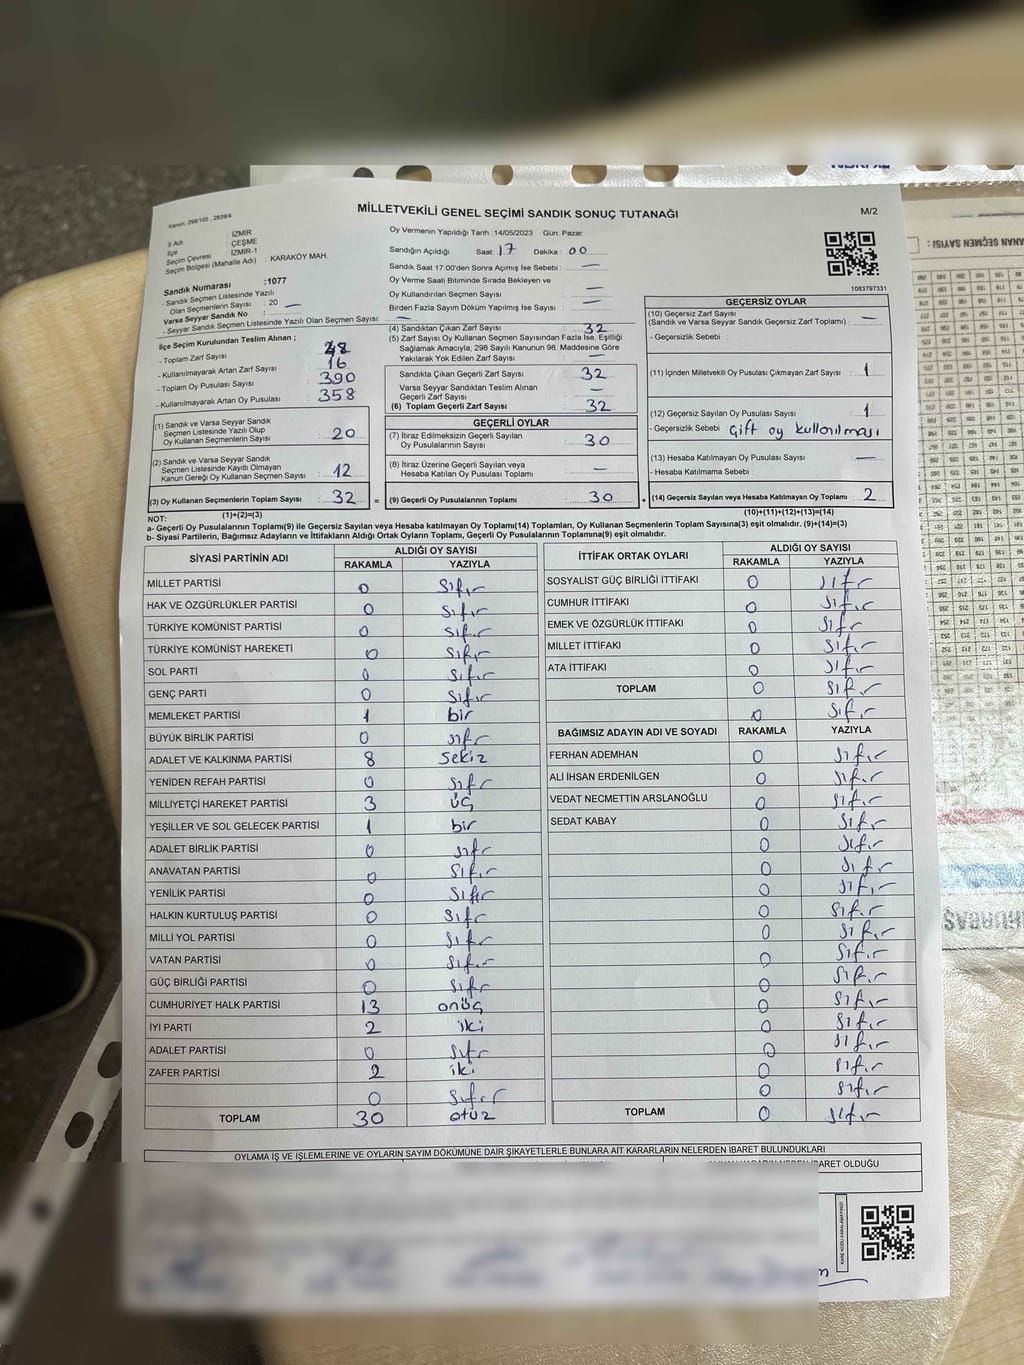 MİLLETVEKİLİ GENEL SEÇİMİ SANDIK SONUÇ TUTANAĞI
M/2
Kanun; 298/105 , 2839/4
İl Adı : İZMİR
İlçe : ÇEŞME
Seçim Çevresi : İZMİR-1
Seçim Bölgesi (Mahalle Adı) : KARAKÖY MAH.
Sandık Numarası :1077
- Sandık Seçmen Listesinde Yazılı
Olan Seçmenlerin Sayısı : 20 —
Varsa Seyyar Sandık No : —
- Seyyar Sandık Seçmen Listesinde Yazılı Olan Seçmen Sayısı:
İlçe Seçim Kurulundan Teslim Alınan ;
- Toplam Zarf Sayısı : 48
- Kullanılmayarak Artan Zarf Sayısı : 16
- Toplam Oy Pusulası Sayısı : 390
- Kullanılmayarak Artan Oy Pusulası : 358
(1) Sandık ve Varsa Seyyar Sandık
Seçmen Listesinde Yazılı Olup
Oy Kullanan Seçmenlerin Sayısı : 20
(2) Sandık ve Varsa Seyyar Sandık
Seçmen Listesinde Kayıtlı Olmayan
Kanun Gereği Oy Kullanan Seçmen Sayısı : 12
(3) Oy Kullanan Seçmenlerin Toplam Sayısı : 32 =
(1)+(2)=(3)
Oy Vermenin Yapıldığı Tarih :14/05/2023 Gün: Pazar
Sandığın Açıldığı Saat: 17 Dakika : 00
Sandık Saat 17:00'den Sonra Açımış İse Sebebi : —
Oy Verme Saati Bitiminde Sırada Bekleyen ve
Oy Kullandırılan Seçmen Sayısı : —
Birden Fazla Sayım Döküm Yapılmış İse Sayısı : —
(4) Sandıktan Çıkan Zarf Sayısı : 32
(5) Zarf Sayısı Oy Kullanan Seçmen Sayısından Fazla İse, Eşitliği
Sağlamak Amacıyla, 298 Sayılı Kanunun 98. Maddesine Göre
Yakılarak Yok Edilen Zarf Sayısı : —
Sandıkta Çıkan Geçerli Zarf Sayısı : 32
Varsa Seyyar Sandıktan Teslim Alınan
Geçerli Zarf Sayısı : —
(6) Toplam Geçerli Zarf Sayısı : 32
GEÇERLİ OYLAR
(7) İtiraz Edilmeksizin Geçerli Sayılan
Oy Pusulalarının Sayısı : 30
(8) İtiraz Üzerine Geçerli Sayılan veya
Hesaba Katılan Oy Pusulası Toplamı : —
(9) Geçerli Oy Pusulalarının Toplamı : 30 +
1083797331
GEÇERSİZ OYLAR
(10) Geçersiz Zarf Sayısı
(Sandık ve Varsa Seyyar Sandık Geçersiz Zarf Toplamı) : —
- Geçersizlik Sebebi :
(11) İçinden Milletvekili Oy Pusulası Çıkmayan Zarf Sayısı : 1
(12) Geçersiz Sayılan Oy Pusulası Sayısı : 1
- Geçersizlik Sebebi : Çift oy kullanılması
(13) Hesaba Katılmayan Oy Pusulası Sayısı : —
- Hesaba Katılmama Sebebi :
(14) Geçersiz Sayılan veya Hesaba Katılmayan Oy Toplamı : 2
(10)+(11)+(12)+(13)=(14)
NOT:
a- Geçerli Oy Pusulalarının Toplamı(9) ile Geçersiz Sayılan veya Hesaba katılmayan Oy Toplamı(14) Toplamları, Oy Kullanan Seçmenlerin Toplam Sayısına(3) eşit olmalıdır. (9)+(14)=(3)
b- Siyasi Partilerin, Bağımsız Adayların ve İttifakların Aldığı Ortak Oyların Toplamı, Geçerli Oy Pusulalarının Toplamına(9) eşit olmalıdır.
SİYASİ PARTİNİN ADI ALDIĞI OY SAYISI
RAKAMLA YAZIYLA
MİLLET PARTİSİ 0 Sıfır
HAK VE ÖZGÜRLÜKLER PARTİSİ 0 Sıfır
TÜRKİYE KOMÜNİST PARTİSİ 0 Sıfır
TÜRKİYE KOMÜNİST HAREKETİ 0 Sıfır
SOL PARTİ 0 Sıfır
GENÇ PARTİ 0 Sıfır
MEMLEKET PARTİSİ 1 bir
BÜYÜK BİRLİK PARTİSİ 0 sıfır
ADALET VE KALKINMA PARTİSİ 8 Sekiz
YENİDEN REFAH PARTİSİ 0 Sıfır
MİLLİYETÇİ HAREKET PARTİSİ 3 üç
YEŞİLLER VE SOL GELECEK PARTİSİ 1 bir
ADALET BİRLİK PARTİSİ 0 sıfır
ANAVATAN PARTİSİ 0 Sıfır
YENİLİK PARTİSİ 0 Sıfır
HALKIN KURTULUŞ PARTİSİ 0 Sıfır
MİLLİ YOL PARTİSİ 0 Sıfır
VATAN PARTİSİ 0 Sıfır
GÜÇ BİRLİĞİ PARTİSİ 0 Sıfır
CUMHURİYET HALK PARTİSİ 13 onüç
İYİ PARTİ 2 iki
ADALET PARTİSİ 0 Sıfır
ZAFER PARTİSİ 2 iki
0 Sıfır
TOPLAM 30 otuz
İTTİFAK ORTAK OYLARI ALDIĞI OY SAYISI
RAKAMLA YAZIYLA
SOSYALİST GÜÇ BİRLİĞİ İTTİFAKI 0 sıfır
CUMHUR İTTİFAKI 0 Sıfır
EMEK VE ÖZGÜRLÜK İTTİFAKI 0 Sıfır
MİLLET İTTİFAKI 0 Sıfır
ATA İTTİFAKI 0 Sıfır
TOPLAM 0 Sıfır
0 Sıfır
BAĞIMSIZ ADAYIN ADI VE SOYADI RAKAMLA YAZIYLA
FERHAN ADEMHAN 0 Sıfır
ALİ İHSAN ERDENİLGEN 0 Sıfır
VEDAT NECMETTİN ARSLANOĞLU 0 Sıfır
SEDAT KABAY 0 Sıfır
0 Sıfır
0 Sıfır
0 Sıfır
0 Sıfır
0 Sıfır
0 Sıfır
0 Sıfır
0 Sıfır
0 Sıfır
0 Sıfır
0 Sıfır
0 Sıfır
TOPLAM 0 Sıfır
OYLAMA İŞ VE İŞLEMLERİNE VE OYLARIN SAYIM DÖKÜMÜNE DAİR ŞİKAYETLERLE BUNLARA AİT KARARLARIN NELERDEN İBARET BULUNDUKLARI
İBARET OLDUĞU
KARE KODU KARALAMAYINIZ!